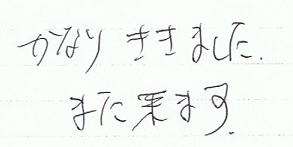 かなり ききました.
また来ます.